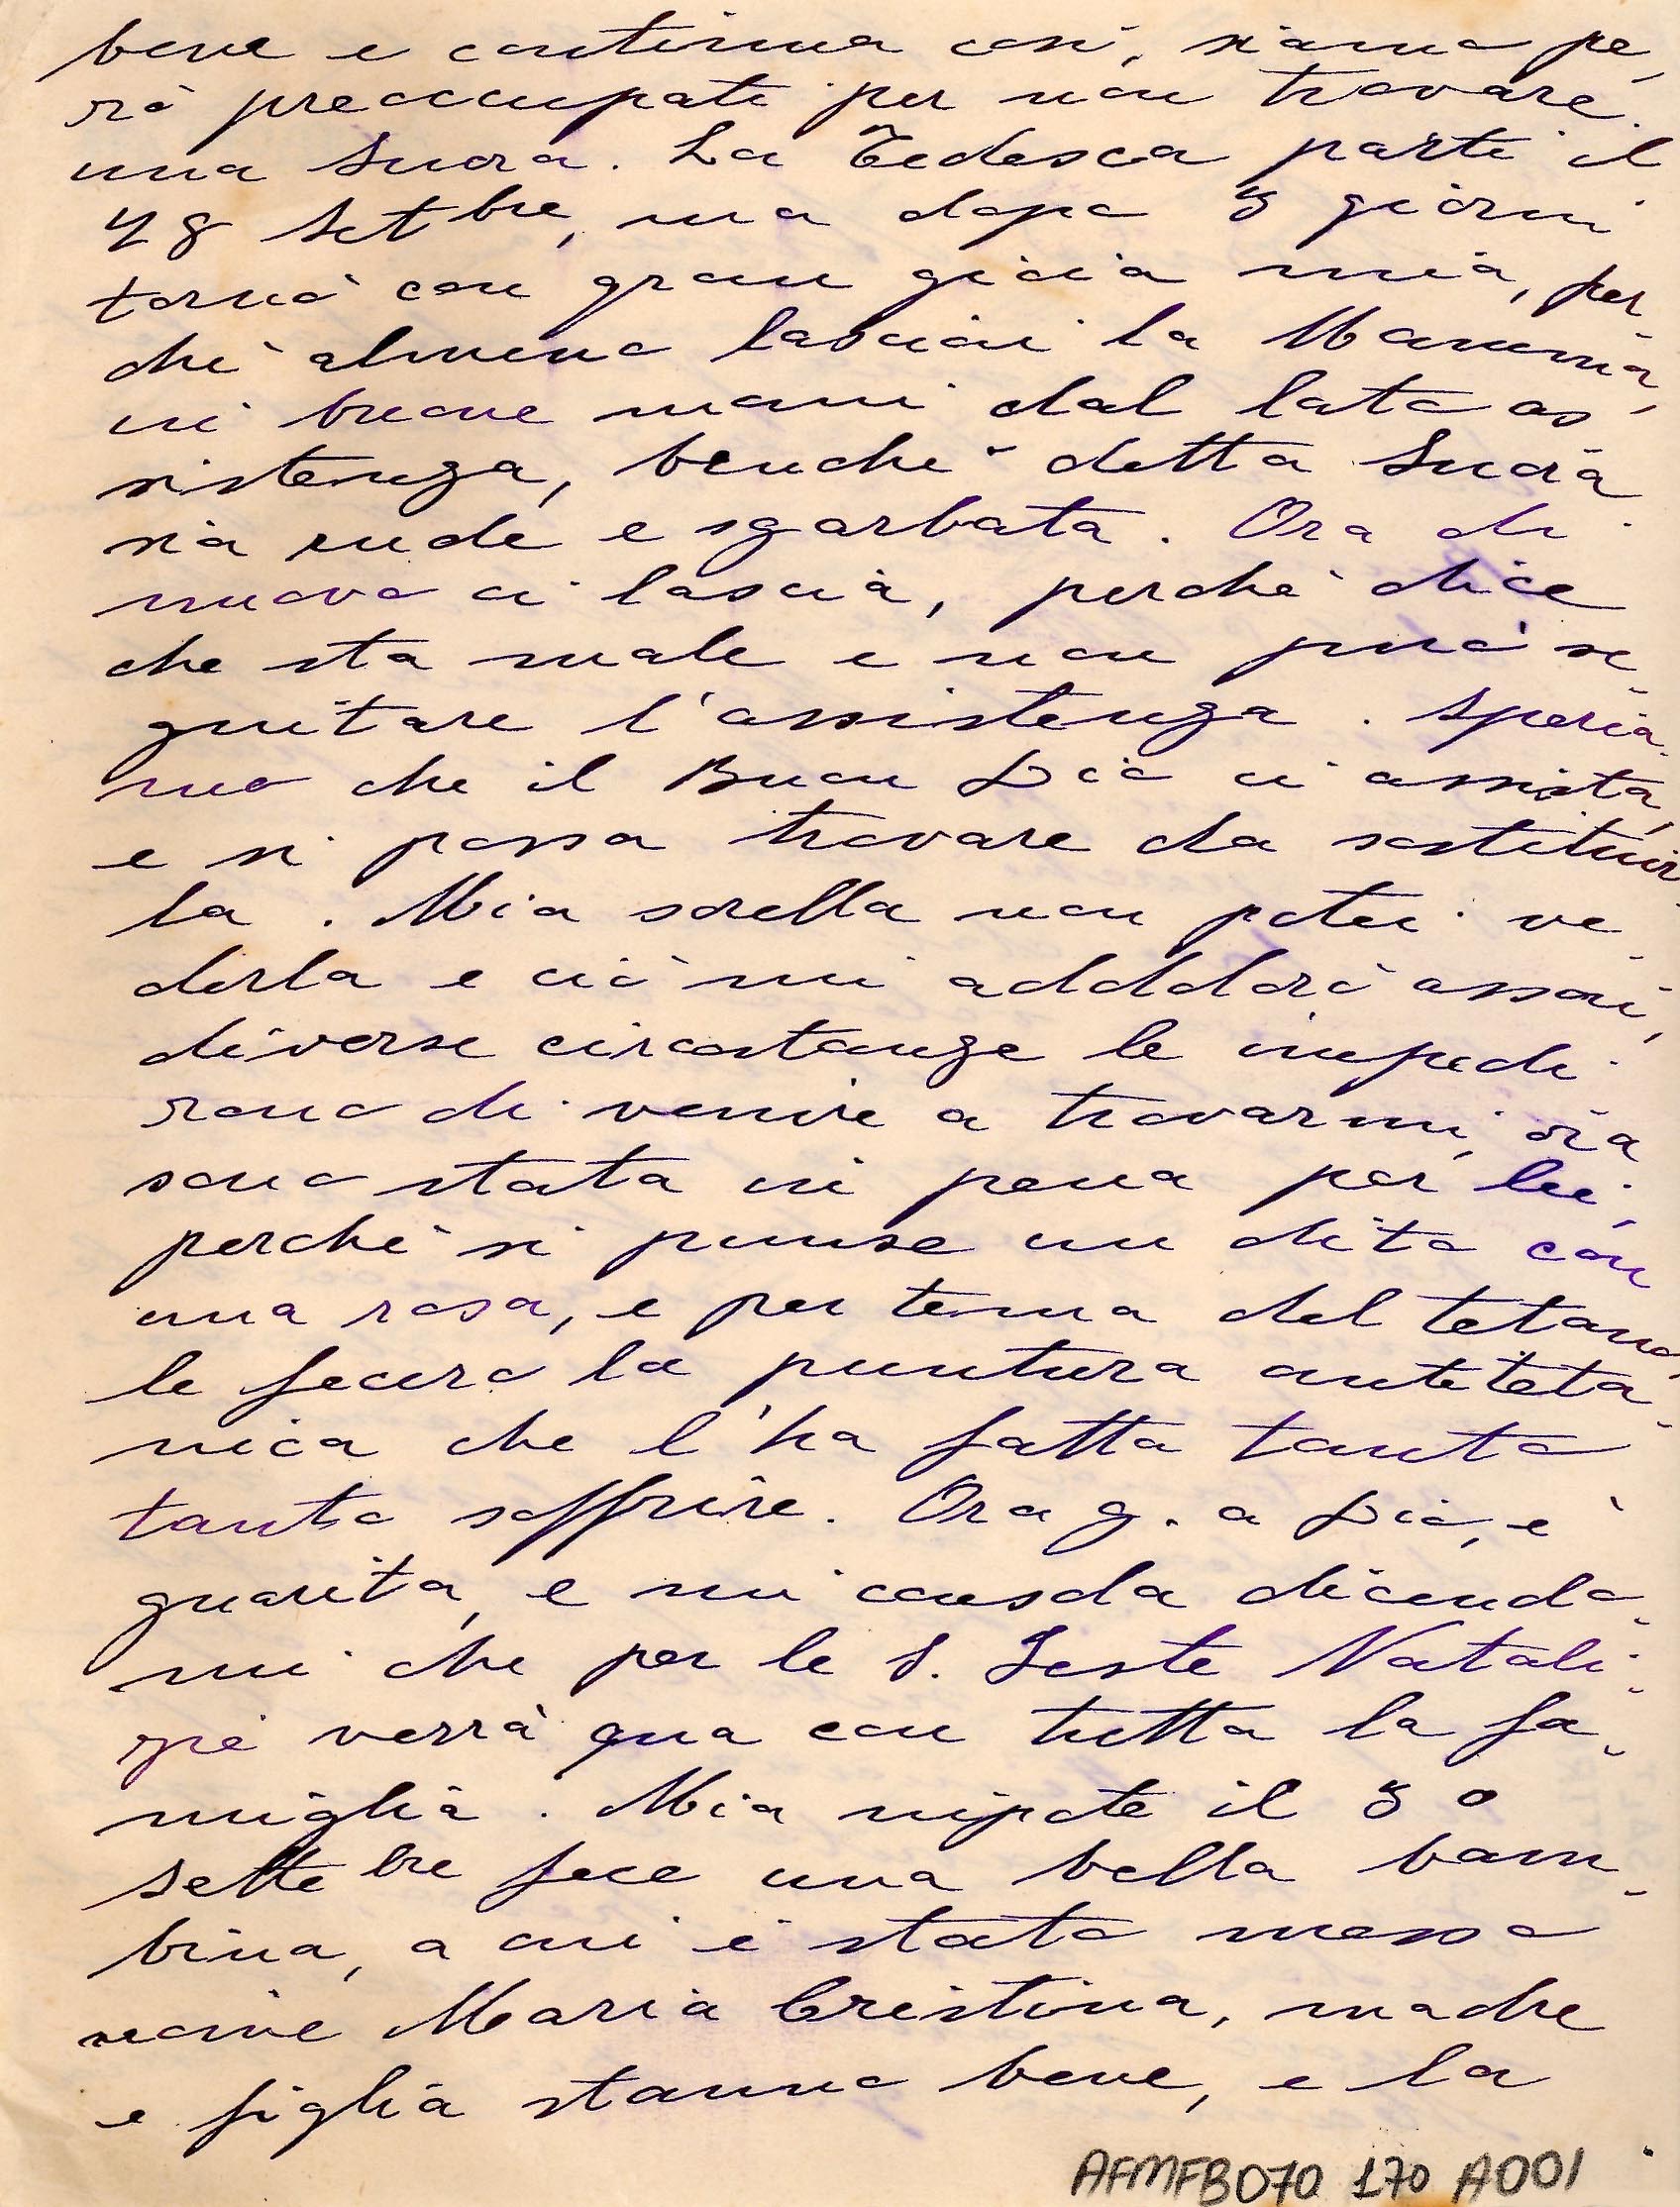 bene e continua così, siamo pe-
rò preoccupati per non trovare
una Suora. La Tedesca partì il
28 Setbre, ma dopo 8 giorni
tornò con gran gioia mia, per-
chè almeno lasciai la Mamma,
in buone mani dal lato as-
sistenza, benchè detta Suora
sia rude e sgarbata. Ora di
nuovo ci lascia, perchè dice
che sta male e non può se-
guitare l'assistenza. Speria-
mo che il Buon Dio ci assista,
e si possa trovare da sostituir-
la. Mia sorella non potei ve-
derla e ciò mi addolorò assai,
diverse circostanze le impedi-
rono di venire a trovarmi, ora
sono stata in pena per lei,
perchè si punse un dito con
una rosa, e per tema del tetano,
le fecero la puntura anteteta-
nica che l'ha fatta tanto
tanto soffrire. Ora g. a Dio, è
guarita, e mi consola dicendo-
mi che per le S. Feste Natali-
zie verrà qua con tutta la fa-
miglia. Mia nipote il 30
Settebre fece una bella bam-
bina, a cui è stato messo
nome Maria Cristina, madre
e figlia stanno bene, e la
AFMFB070 170 A001